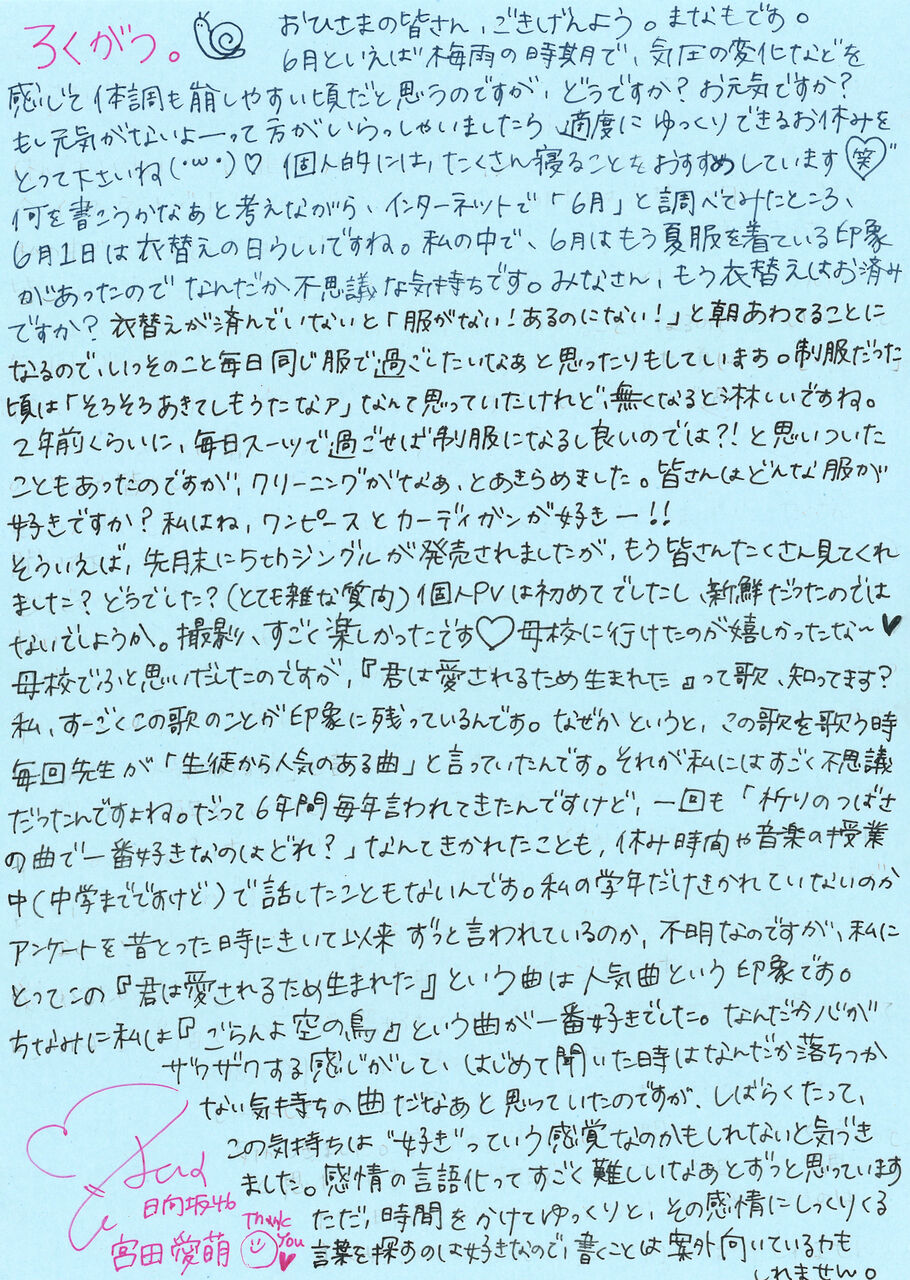 ろくがつ。
おひさまの皆さん、ごきげんよう。まなもです。
6月といえば梅雨の時期で、気圧の変化などを
感じて体調も崩しやすい頃だと思うのですが、どうですか？お元気ですか？
もし元気がないよーって方がいらっしゃいましたら適度にゆっくりできるお休みを
とって下さいね(･ω･)♡ 個人的には、たくさん寝ることをおすすめしています笑
何を書こうかなあと考えながら、インターネットで「6月」と調べてみたところ、
6月1日は衣替えの日らしいですね。私の中で、6月はもう夏服を着ている印象
があったのでなんだか不思議な気持ちです。みなさん、もう衣替えはお済み
ですか？衣替えが済んでいないと「服がない！あるのにない！」と朝あわてることに
なるので、いっそのこと毎日同じ服で過ごしたいなぁと思ったりもしています。制服だった
頃は「そろそろあきてしもうたなァ」なんて思っていたけれど、無くなると淋しいですね。
2年前くらいに、毎日スーツで過ごせば制服になるし良いのでは?!と思いついた
こともあったのですが、クリーニングがなぁ、とあきらめました。皆さんはどんな服が
好きですか？私はね、ワンピースとカーディガンが好きー!!
そういえば、先月末に5thシングルが発売されましたが、もう皆さんたくさん見てくれ
ました？どうでした？(とても雑な質問)個人PVは初めてでしたし、新鮮だったのでは
ないでしょうか。撮影、すごく楽しかったです♡母校に行けたのが嬉しかったな〜♥
母校でふと思いだしたのですが、『君は愛されるため生まれた』って歌、知ってます？
私、すーごくこの歌のことが印象に残っているんです。なぜかというと、この歌を歌う時
毎回先生が「生徒から人気のある曲」と言っていたんです。それが私にはすごく不思議
だったんですよね。だって6年間毎年言われてきたんですけど、一回も「祈りのつばさ
の曲で一番好きなのはどれ？」なんてきかれたことも、休み時間や音楽の授業
中(中学までですけど)で話したこともないんです。私の学年だけきかれていないのか
アンケートを昔とった時にきいて以来ずっと言われているのか、不明なのですが、私に
とってこの『君は愛されるため生まれた』という曲は人気曲という印象です。
ちなみに私は『ごらんよ空の鳥』という曲が一番好きでした。なんだか心が
ザワザワする感じがして、はじめて聞いた時はなんだか落ちつか
ない気持ちの曲だなあと思っていたのですが、しばらくたって、
この気持ちは"好き"っていう感覚なのかもしれないと気づき
ました。感情の言語化ってすごく難しいなあとずっと思っています
ただ、時間をかけてゆっくりと、その感情にしっくりくる
言葉を探すのは好きなので、書くことは案外向いているかも
しれません。
日向坂46
宮田愛萌
Thank
you